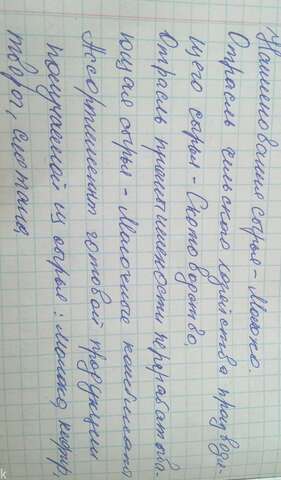 Наименования сырья - Молоко.
Отрасль сельского хозяйства производя-
щего сырья - Скотоводство.
Отрасль промышленности переработыва-
ющая сырья - Молочные комбинаты
Ассортимент готовой продукции
получаемой из сырья: молоко, кефир,
творог, сметана